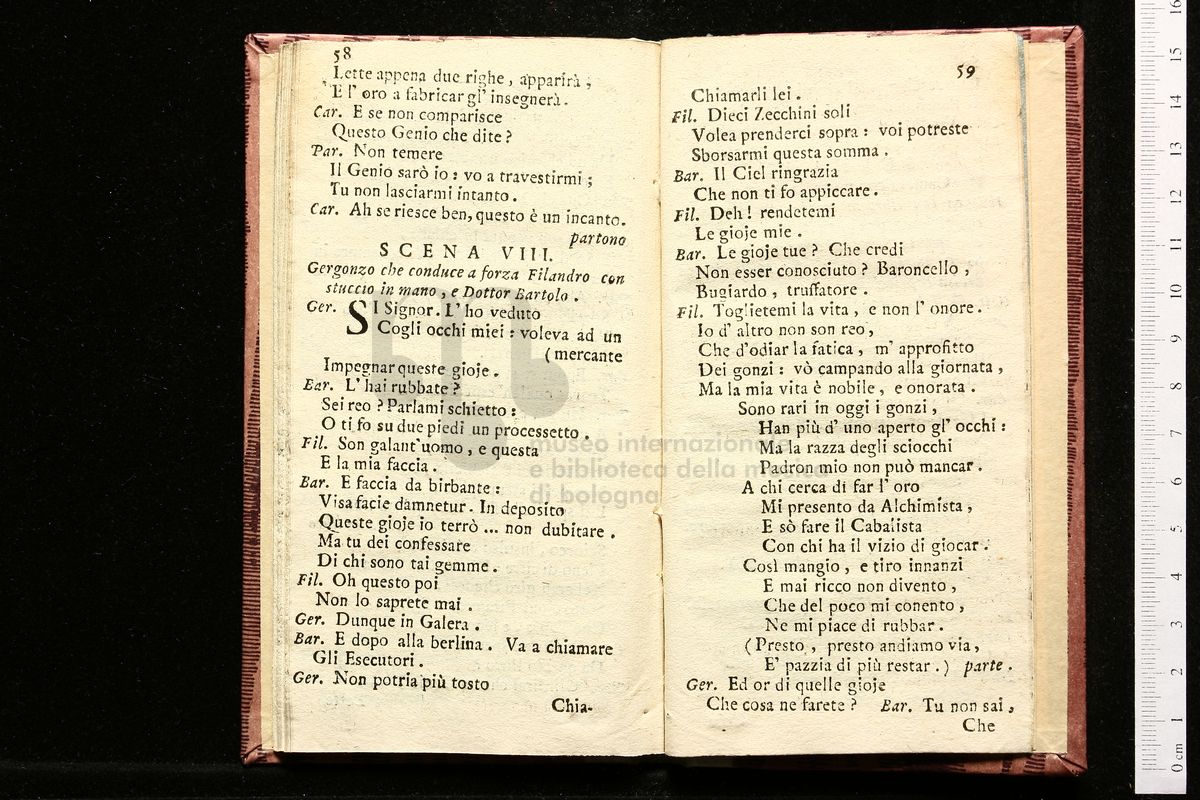 58
Lette appena due righe, apparirà,
E l' oro a fabricar gl' insegnerà.
Car. E se non comparisce
Questo Genio che dite?
Par. Non temere
Il Genio sarò io: vo a travestirmi;
Tu non lasciarmi intanto.
Car. Ah se riesce ben, questo è un incanto.
partono
SCENA VIII.
Gergonzo che conduce a forza Filandro con
stuccio in mano, e Dottor Bartolo.
Ger. SI Signor. L' ho veduto
Cogli occhi miei: voleva ad un
(mercante
Impegnar queste gioje.
Bar. L' hai rubbate?
Sei reo? Parlami schietto:
O ti fo su due piedi un processetto.
Fil. Son galant'uomo, e questa
E la mia faccia.
Bar. E faccia da birbante:
Visa facie damnetur. In deposito
Queste gioje io terrò ... non dubitare.
Ma tu dei confessare
Di chi sono tai gemme.
Fil. Oh questo poi
Non lo saprete mai.
Ger. Dunque in Galera.
Bar. E dopo alla berlina. Va a chiamare
Gli Esecutori.
Ger. Non potria più tosto
Chia-
59
Chiamarli lei.
Fil. Dieci Zecchini soli
Volea prenderci sopra: voi potreste
Sborsarmi questa somma
Bar. Il Ciel ringrazia
Che non ti fo appiccare.
Fil. Deh! rendetemi
Le gioje mie.
Bar. Le gioje tue? Che credi
Non esser conosciuto? Baroncello,
Bugiardo, truffatore.
Fil. Toglietemi la vita, e non l' onore.
Io d' altro non son reo,
Che d'odiar la fatica, m' approfitto
Dei gonzi: vò campando alla giornata,
Ma la mia vita è nobile, e onorata.
Sono rari in oggi i gonzi,
Han più d' uno aperto gl' occhi:
Ma la razza degli sciocchi
Padron mio non può mancar.
A chi cerca di far l' oro
Mi presento da Alchimista,
E sò fare il Cabalista
Con chi ha il vizio di giocar.
Così mangio, e tiro innanzi
E mai ricco non divento,
Che del poco mi conento,
Ne mi piace di rubbar.
(Presto, presto andiamo via,
E' pazzia di più restar.) parte.
Ger. Ed or di quelle gioje
Che cosa ne farete? Bar. Tu non sai,
Che
museo internazionale
e biblioteca della musica
di bologna
0 cm 1 2 3 4 5 6 7 8 9 10 11 12 13 14 15 16